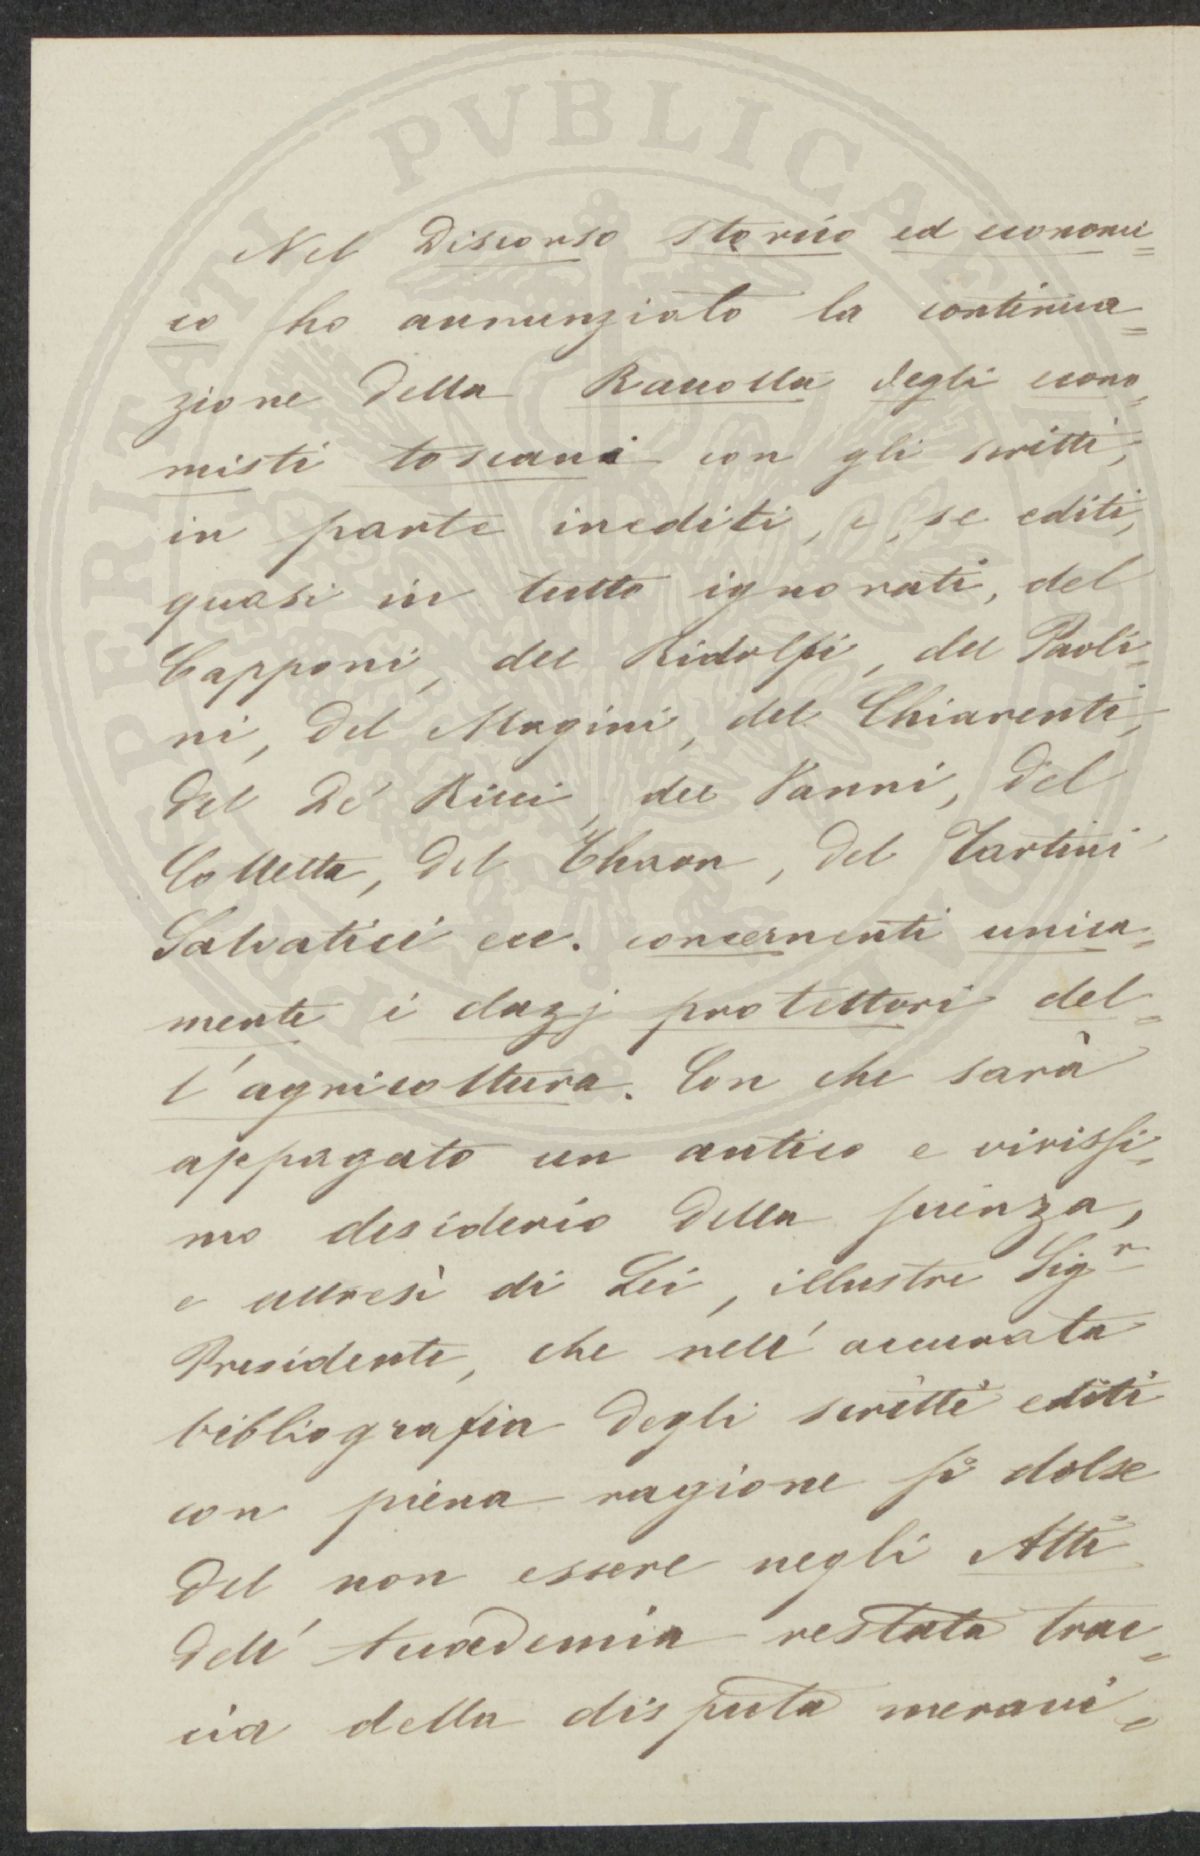 Nel Discorso storico ed economi=
co ho annunziato la continua=
zione della Raccolta degli econo=
misti toscani con gli scritti,
in parte inediti, e, se editi,
quasi in tutto ignorati, del
Capponi, del Ridolfi, del Paoli=
ni, del Magini, del Chiarenti,
del De' Ricci, del Vanni, del
Colletta, del Thaon, del Tartini
Salvatici ecc. concernenti unica=
mente i dazj protettori del=
l'agricoltura. Con che sarà
appagato un antico e vivissi=
mo desiderio della scienza,
e altresì di Lei, illustre Sigr
Presidente, che nell'accurata
bibliografia degli scritti editi
con piena ragione si dolse
del non essere negli Atti
dell'Accademia restata trac=
cia della disputa meravi=
PROSPERITATI PVBLICAE AVGENDAE